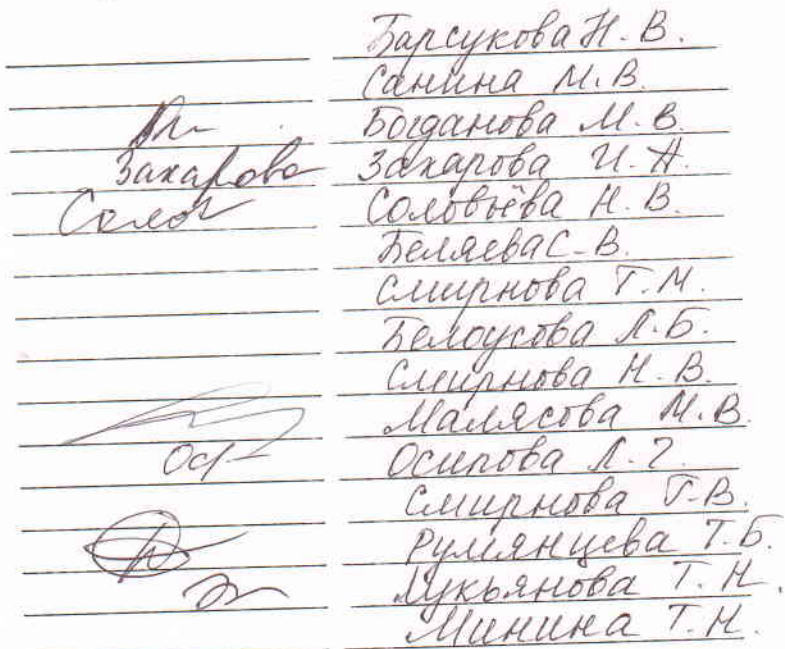 Барсукова Н. В.
Санина М. В.
Богданова М. В.
Захарова Захарова И. А.
Солов Соловьёва Н. В.
Беляева С. В.
Смирнова Т. М.
Белоусова Л. Б.
Смирнова Н. В.
Малясова М. В.
Ос Осипова Л. Г.
Смирнова Т. В.
Румянцева Т. Б.
Лукьянова Т. Н.
Минина Т. Н.